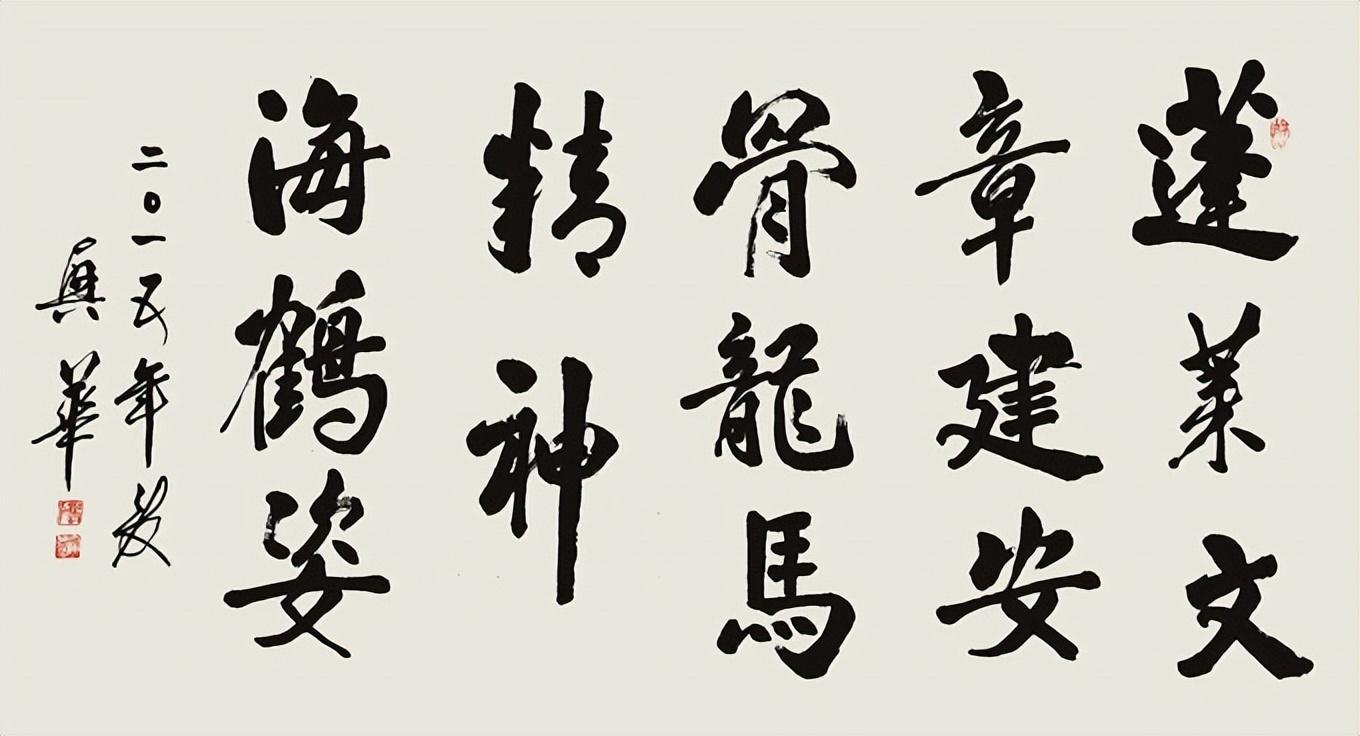 蓬莱文
章建安
骨龍馬
精神
海鶴姿
二〇一五年
華